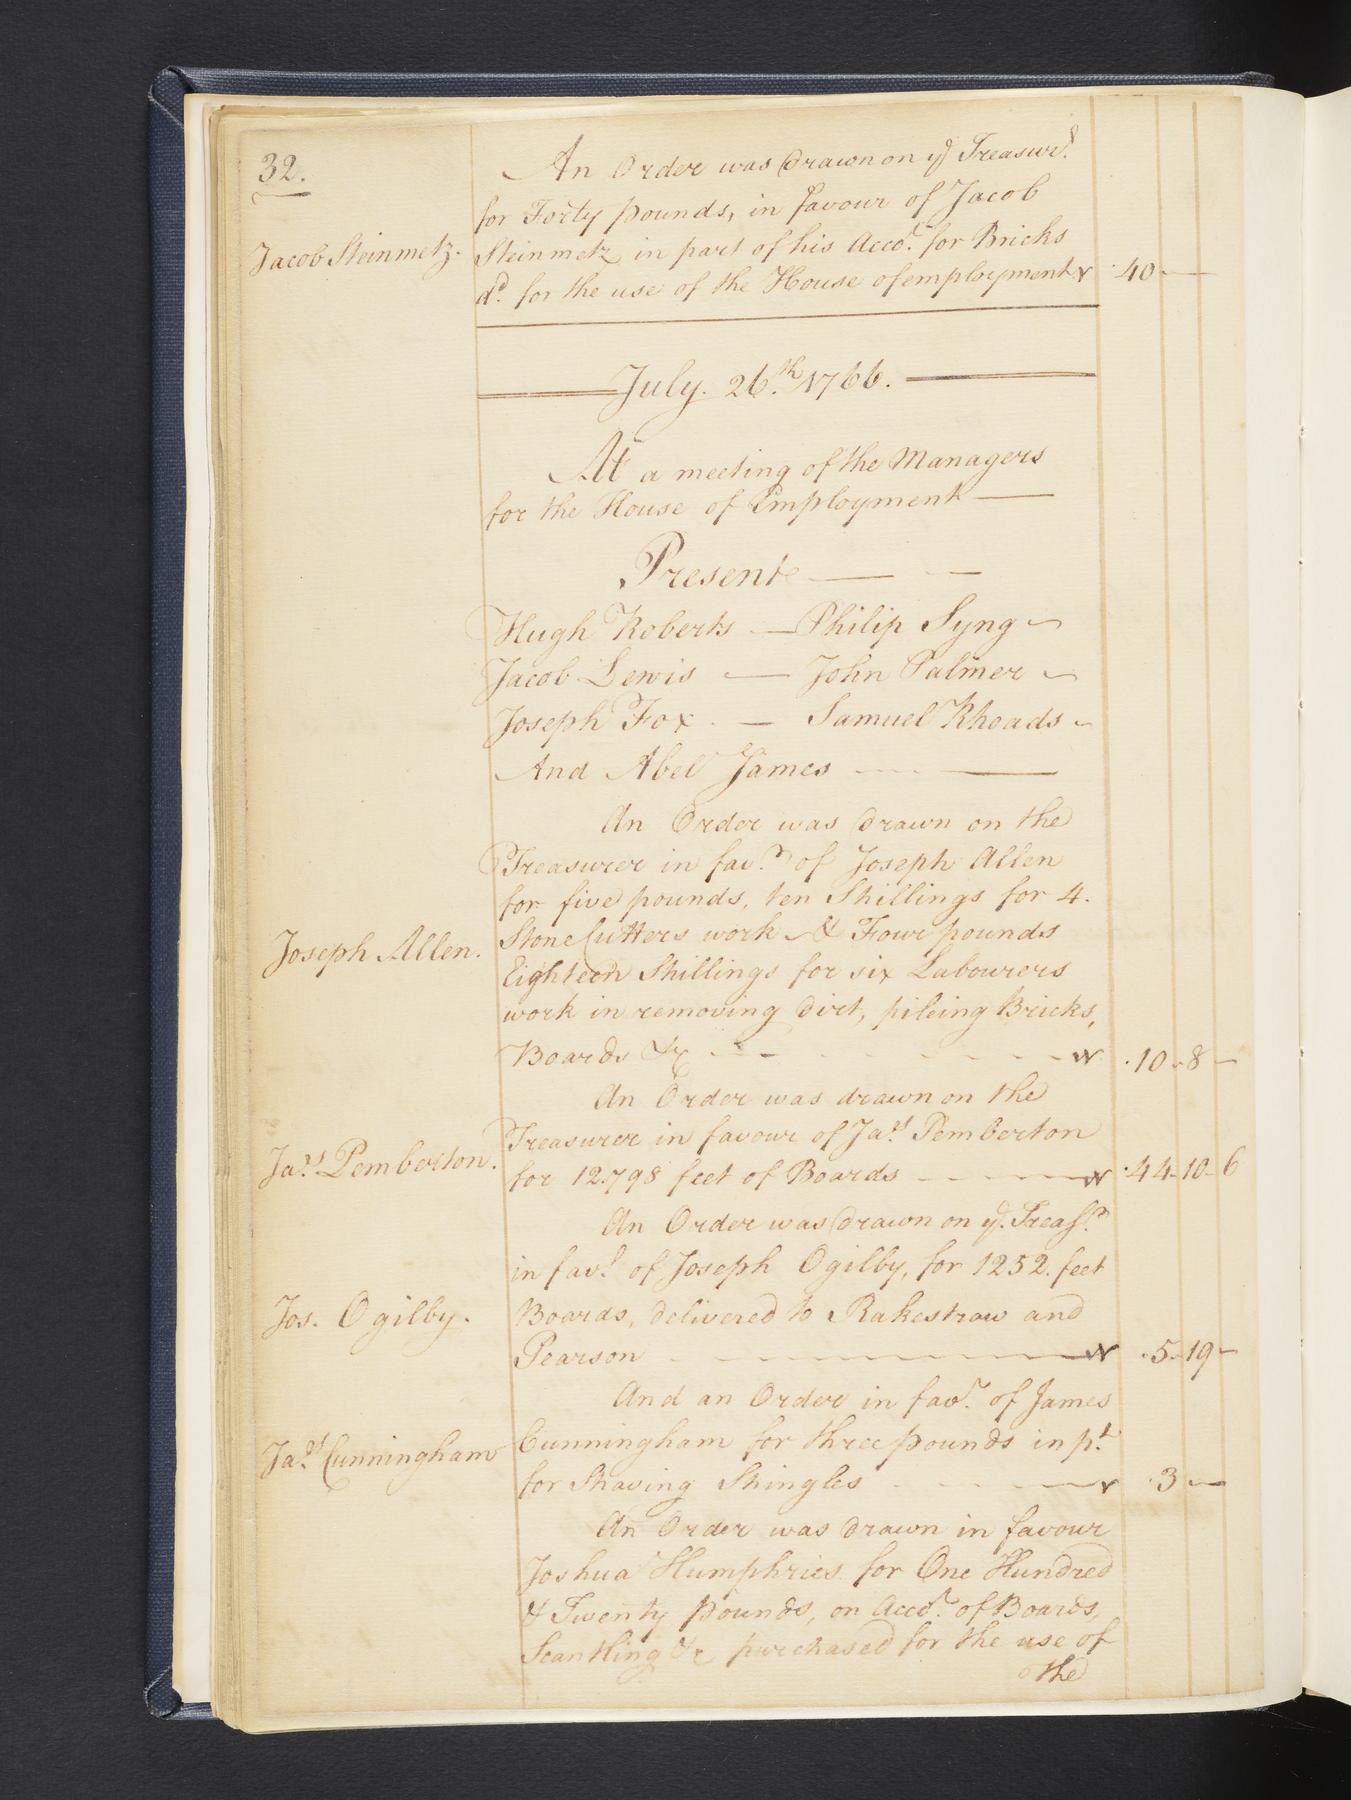 32.
An Order was Drawn on ye Treasurr.
for Forty pounds, in favour of Jacob
Jacob Steinmetz. Steinmetz in part of his Accot. for Bricks
dd. for the use of the House of employment 40 —
July. 26.th 1766.
At a meeting of the Managers
for the House of Employment —
Present — —
Hugh Roberts — Philip Syng —
Jacob Lewis — John Palmer —
Joseph Fox. — Samuel Rhoads —
And Abel James — —
An Order was Drawn on the
Treasurer in favr. of Joseph Allen
for five pounds, ten Shillings for 4.
Joseph Allen. Stone Cutters work & Four pounds
Eighteen Shillings for six Labourers
work in removing Dirt, pileing Bricks,
Boards &c - - - 10 - 8 -
An Order was drawn on the
Treasurer in favour of Jas. Pemberton
Jas. Pemberton. for 12.798 feet of Boards - - - 44 - 10 - 6
An Order was Drawn on ye. Treasr.
in favr. of Joseph Ogilby, for 1252. feet
Jos. Ogilby. Boards, delivered to Rakestraw and
Pearson - - - 5 - 19 -
And an Order in favr. of James
Jas. Cunningham Cunningham for three pounds in pt.
for Shaving Shingles - - - 3 —
An Order was Drawn in favour
Joshua Humphries for One Hundred
& Twenty Pounds, on Accot. of Boards,
Scantling &c purchased for the use of
the